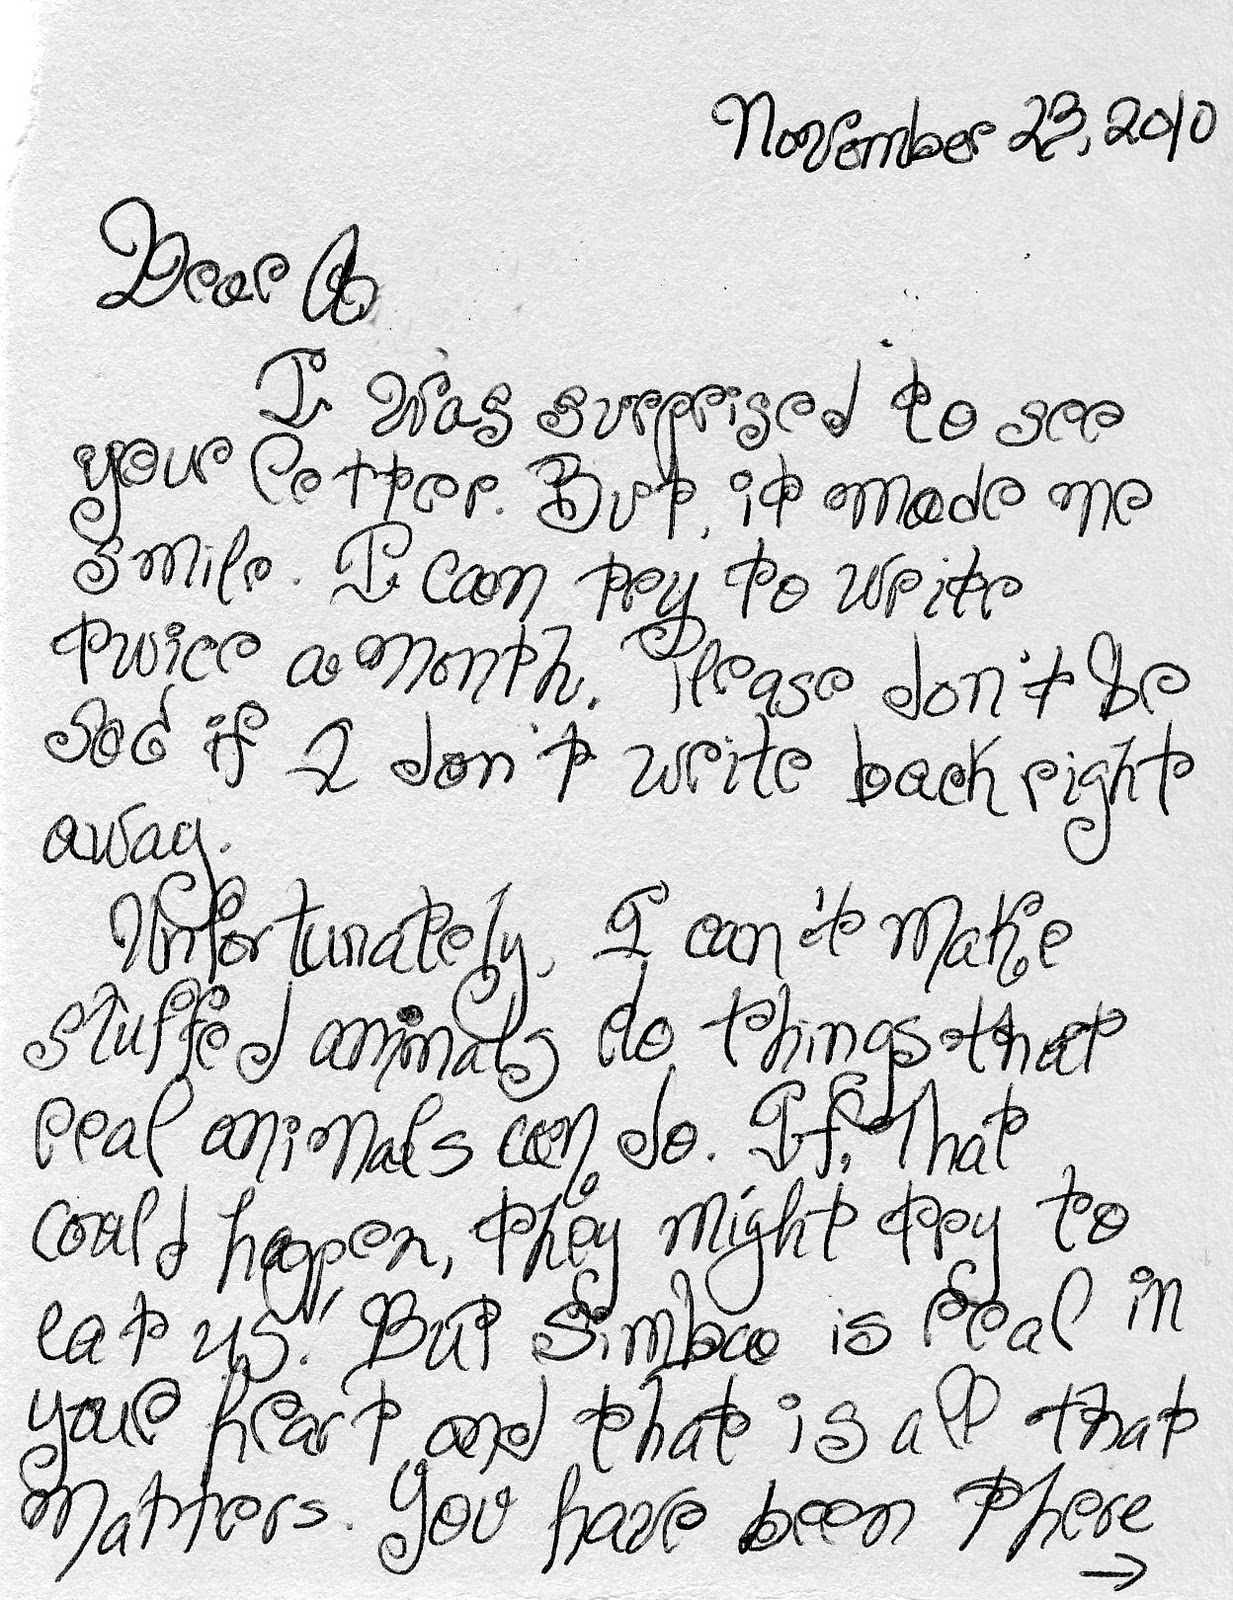 November 23, 2010
Dear A
I was surprised to see
your letter. But, it made me
smile. I can try to write
twice a month. Please don't be
sad if I don't write back right
away.
Unfortunately, I can't make
stuffed animals do things that
real animals can do. If, that
could happen, they might try to
eat us! But Simba is real in
your heart and that is all that
matters. You have been there
→